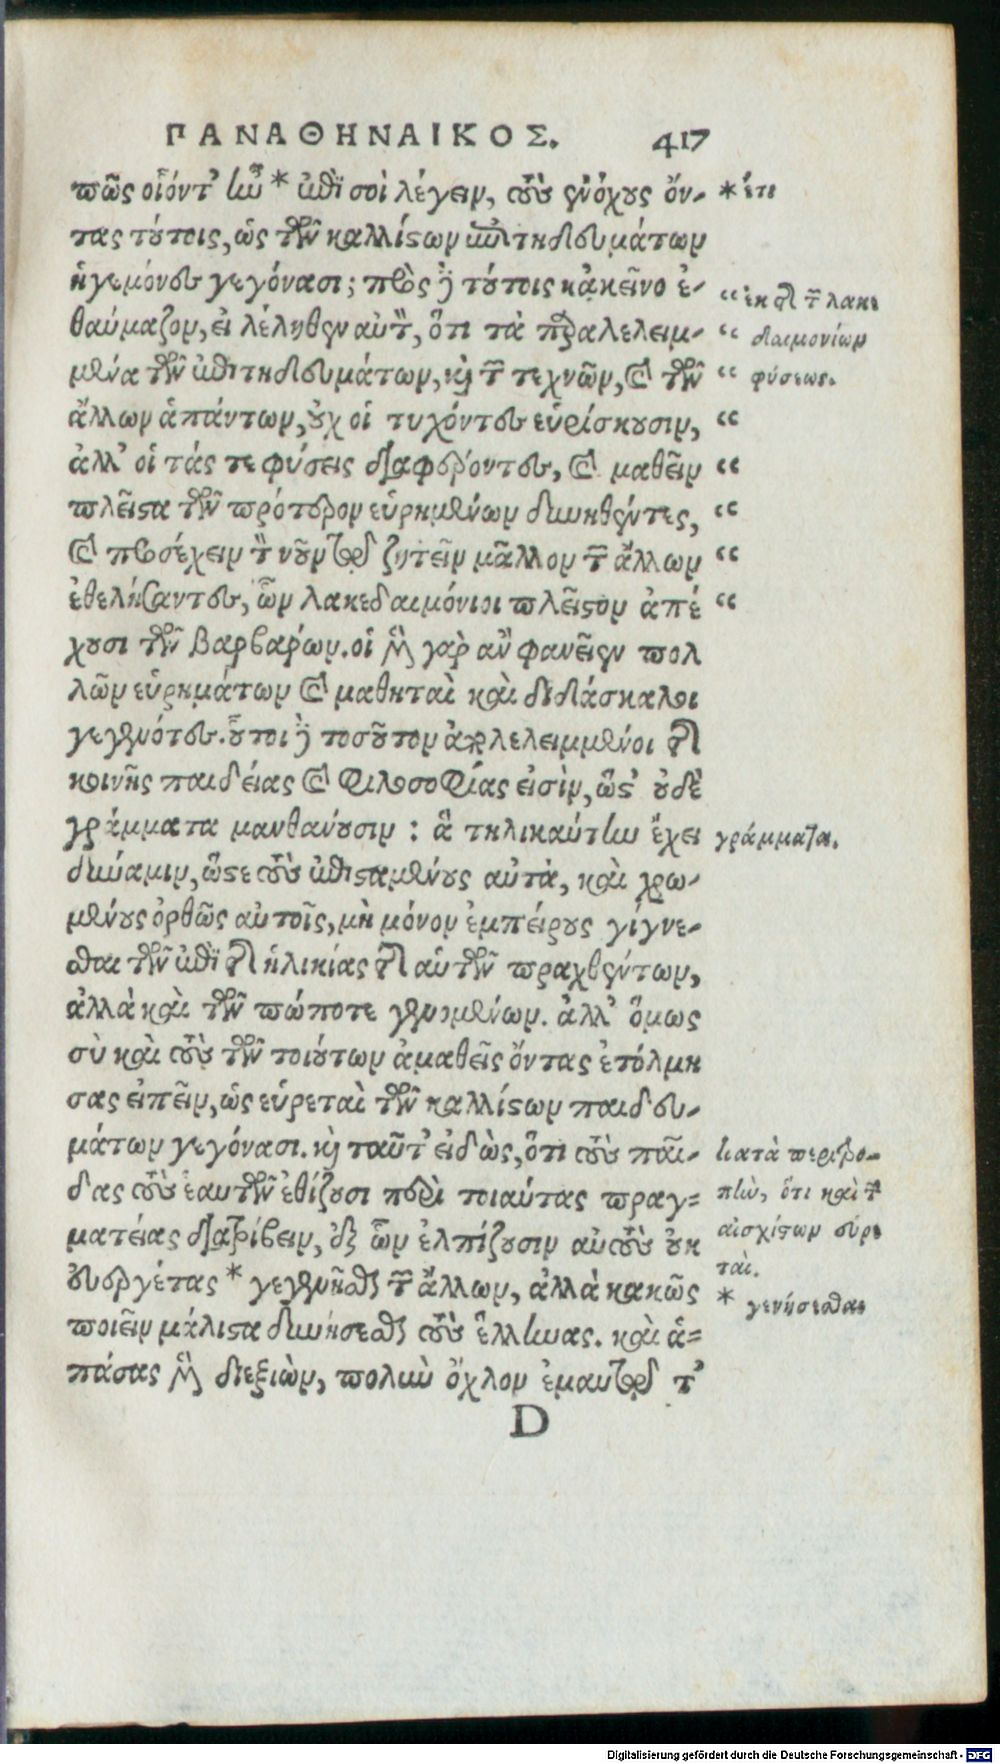 ΠΑΝΑΘΗΝΑΙΚΟΣ. 417
πῶς οἷόντ᾽ ἦν * ἐπὶ σοὶ λέγειν, τοὺς ἐνόχους ὄν- * ἔτι
τας τούτοις, ὡς τῶν καλλίστων ἐπιτηδευμάτων
ἡγεμόνες γεγόνασι; πρὸς δὲ τούτοις κἀκεῖνο ἐ-
θαύμαζον, εἰ λέληθεν αὐτὸν, ὅτι τὰ παραλελειμ-
μένα τῶν ἐπιτηδευμάτων, καὶ τῶν τεχνῶν, καὶ τῶν
ἄλλων ἁπάντων, οὐχ οἱ τυχόντες εὑρίσκουσιν,
ἀλλ᾽ οἱ τάς τε φύσεις διαφέροντες, καὶ μαθεῖν
πλεῖστα τῶν πρότερον εὑρημένων δυνηθέντες,
καὶ προσέχειν τὸν νοῦν τῷ ζητεῖν μᾶλλον τῶν ἄλλων
ἐθελήσαντες, ὧν λακεδαιμόνιοι πλεῖστον ἀπέ
χουσι τῶν βαρβαρών. οἱ μὲν γὰρ ἂν φανεῖεν πολ
λῶν εὑρημάτων καὶ μαθηταὶ καὶ διδάσκαλοι
γεγενότες. οὗτοι δὲ τοσοῦτον ἀπολελειμμένοι τῆς
κοινῆς παιδείας καὶ φιλοσοφίας εἰσὶν, ὥστ᾽ οὐδὲ
γράμματα μανθάνουσιν : ἃ τηλικαύτην ἔχει
δύναμιν, ὥστε τοὺς ἐπισταμένους αὐτὰ, καὶ χρω-
μένους ὀρθῶς αὐτοῖς, μὴ μόνον ἐμπείρους γίγνε-
σθαι τῶν ἐπὶ τῆς ἡλικίας τῆς αὑτῶν πραχθέντων,
ἀλλὰ καὶ τῶν πώποτε γενομένων. ἀλλ᾽ ὅμως
σὺ καὶ τοὺς τῶν τοιούτων ἀμαθεῖς ὄντας ἐτόλμη
σας εἰπεῖν, ὡς εὑρεταὶ τῶν καλλίστων παιδευ-
μάτων γεγόνασι. καὶ ταῦτ᾽ εἰδὼς, ὅτι τοὺς παῖ-
δας τοὺς ἑαυτῶν ἐθίζουσι περὶ τοιαύτας πραγ-
ματείας διατρίβειν, ἐξ ὧν ἐλπίζουσιν αὐτοὺς οὐκ
εὐεργέτας * γεγενῆσθαι τῶν ἄλλων, ἀλλὰ κακῶς
ποιεῖν μάλιστα δυνήσεσθαι τοὺς ἕλληνας. καὶ ἁ-
πάσας μὲν διεξιὼν, πολὺν ὄχλον ἐμαυτῷ τ᾽
D
“ ἐκ τῆς τῶν λακε
“ δαιμονίων
“ φύσεως.
“
“
“
“
“
γράμματα.
κατὰ περιτρο-
πὴν, ὅτι καὶ τῶν
αἰσχίστων εὑρε
ταί.
* γενήσεσθαι
Digitalisierung gefördert durch die Deutsche Forschungsgemeinschaft - DFG